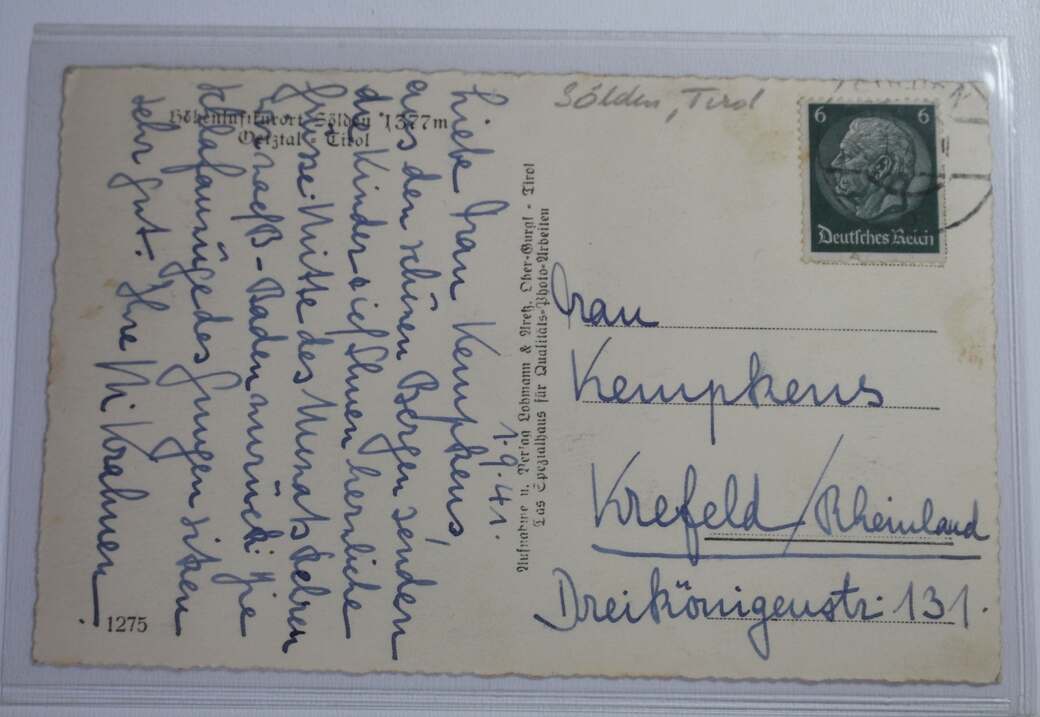 Höhenluftkurort Sölden 1377m
Oetztal - Tirol
Sölden, Tirol
6 6
Deutsches Reich
1.9.41.
Liebe Frau Kempkens,
aus den schönen Bergen senden
die Kinder & ich Ihnen herzliche
Grüsse. Mitte des Monats kehren
nach B-Baden zurück.
Schlafanzüge des Jungen sitzen
sehr gut. Ihre M. Krahmer
1275
Aufnahme u. Verlag Lohmann & Aretz, Ober-Gurgl - Tirol
Das Spezialhaus für Qualitäts-Photo-Arbeiten
Frau
Kempkens
Krefeld / Rheinland
Dreikönigenstr. 131.